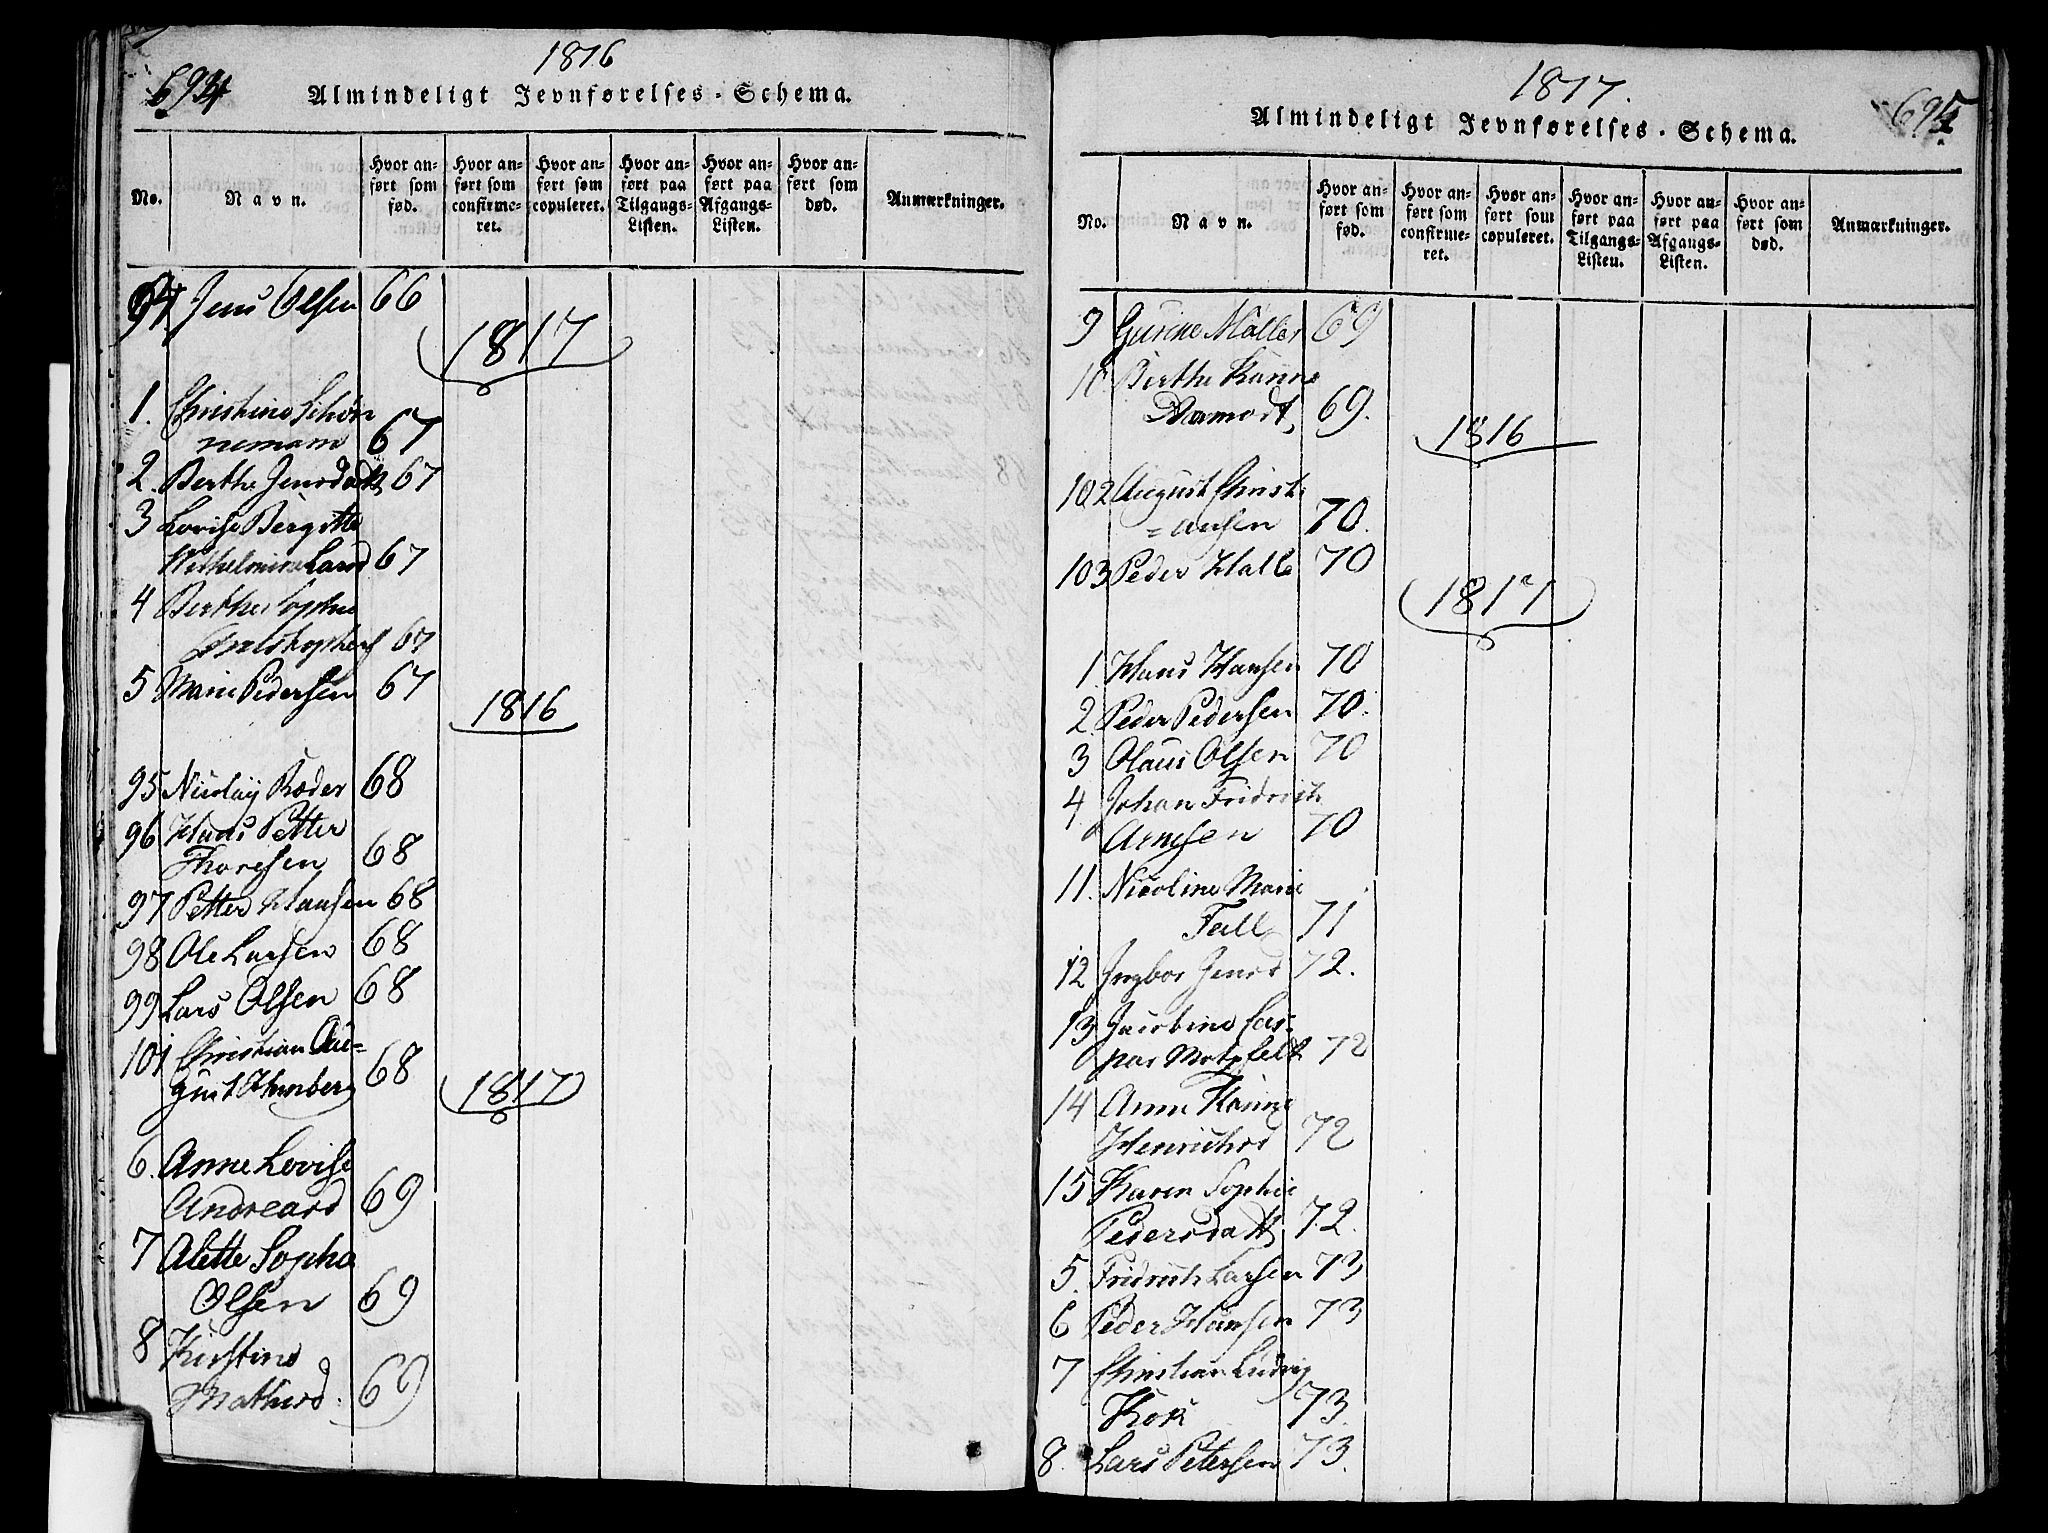 694
1816
Almindeligt Jevnførelses-Schema.
No.
Navn.
Hvor anført som fød.
Hvor anført som confirmeret.
Hvor anført som copuleret.
Hvor anført paa Tilgangs-Listen.
Hvor anført paa Afgangs-Listen.
Hvor anført som død.
Anmærkninger.
94 Jens Olsen 66
1817
1. Christine Schøn
nemann 67
2. Berthe Jensdatt 67
3 Lovise Bergitte
Wilhelmine Land 67
4 Berthe Sophie
Christophers 67
5 Marie Pedersen 67
1816
95 Nicolay Røder 68
96 Hans Petter
Thoresen 68
97 Petter Hansen 68
98 Ole Larsen 68
99 Lars Olsen 68
101 Christian Au=
gust 68
1817
6. Anne Lovise
Andreasd 69
7 Alette Sophia
Olsen 69
8 Kirstine
Mathisd. 69
1817.
695
Almindeligt Jevnførelses-Schema.
No.
Navn.
Hvor anført som fød.
Hvor anført som confirmeret.
Hvor anført som copuleret.
Hvor anført paa Tilgangs-Listen.
Hvor anført paa Afgangs-Listen.
Hvor anført som død.
Anmærkninger.
9 Gurine Møller 69
10 Berthe Hanne
Aamodt, 69.
1816
102 August Christ
=ansen 70.
103 Peder Hall 70
1817
1 Hans Hansen 70
2 Peder Pedersen 70.
3 Olaus Olsen 70
4 Johan Fridrich
Arnesen 70
11. Nicoline Marie
Fall 71
12 Ingbor Jensd 72.
13 Jacobine Cas=
par 72
14 Anne Hanne
Henrichsd 72
15 Karen Sophie
Pedersdatt 72.
5. Fridrich Larsen 73
6 Peder Hansen 73
7 Christian Ludvig
Kok 73
8. Lars Petersen 73.